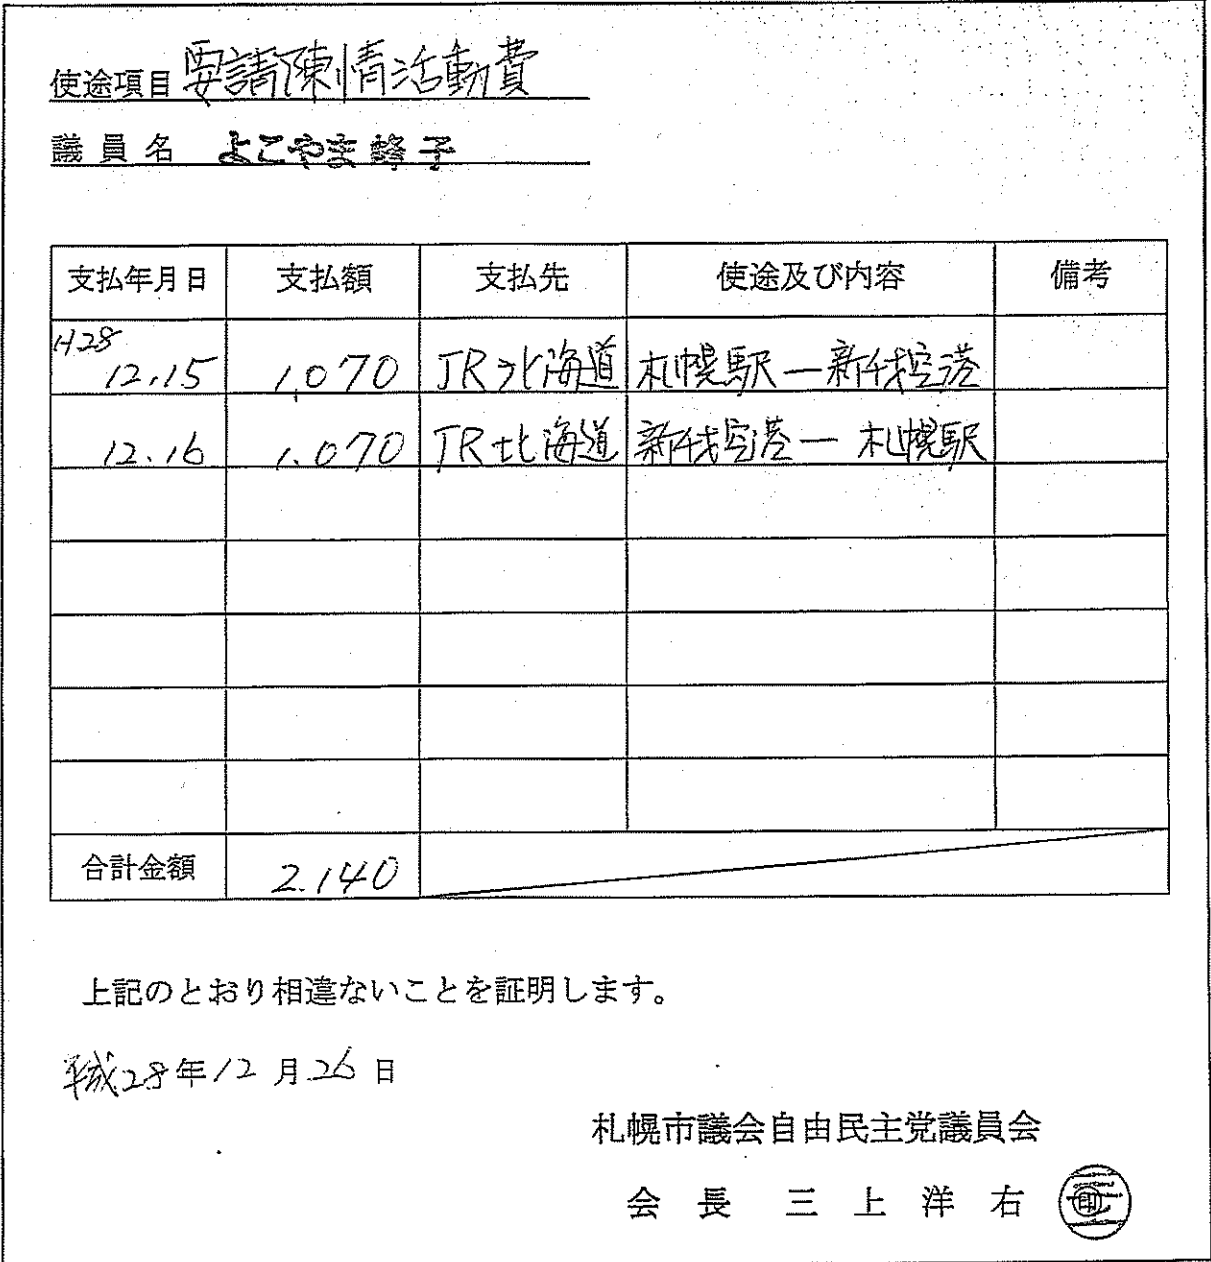 使途項目 要請陳情活動費
議員名 よこやま峰子
支払年月日 支払額 支払先 使途及び内容 備考
H28
12.15 1,070 JR北海道 札幌駅ー新千歳空港
12.16 1,070 JR北海道 新千歳空港ー札幌駅
合計金額 2,140
上記のとおり相違ないことを証明します。
平成28年12月26日
札幌市議会自由民主党議員会
会長 三上洋右 印